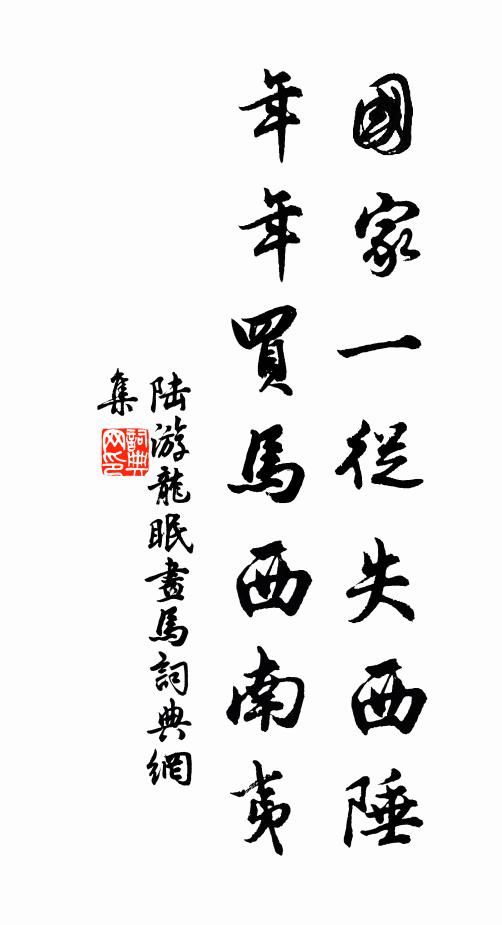 國家一從失西陲
年年買馬西南夷
陆游龍眠畫馬詞典網
集
詞典网印